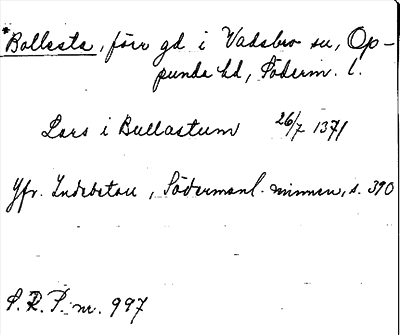 *Bollesta, förr gd i Vadsbro sn, Op-
punda hd, Söderm. l.
Lars i Bullastum 26/7 1371
Jfr. Indebetou, Södermanl. minnen, s. 390
S. R. P. nr. 997